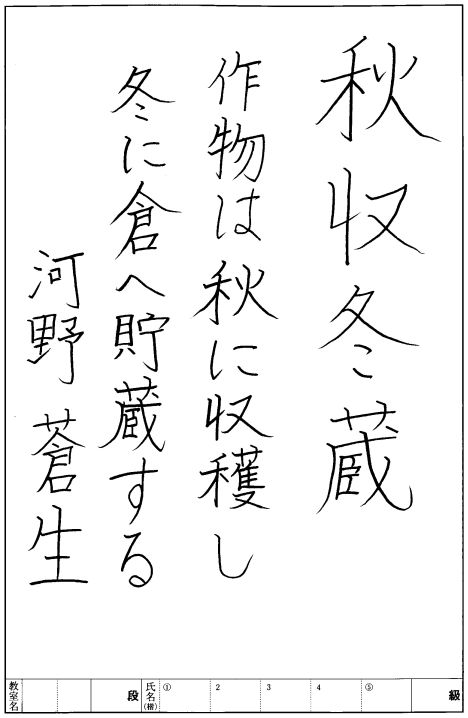 秋収冬蔵
作物は秋に収穫し
冬に倉へ貯蔵する
河野 蒼生
級
⑤
4
3
2
①
氏名(楷)
段
教室名